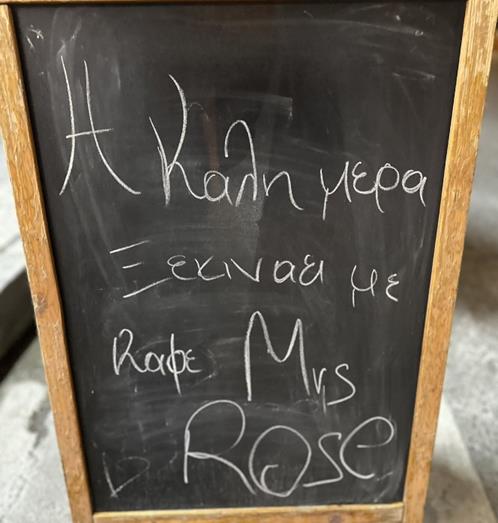 Η Καλη μερα
Ξεκιναει με
Καφε Mrs
ROSe